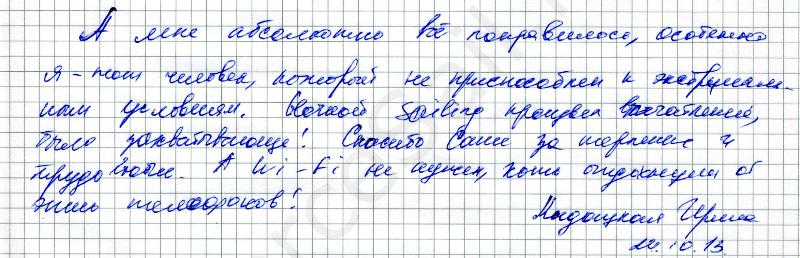 А мне абсолютно всё понравилось, особенно
я - тот человек, который не приспособлен к экстремаль-
ным условиям. Ночной Sailing произвёл впечатление,
было захватывающе! Спасибо Саше за терпение и
трудолюбие. А Wi-Fi не нужен, хоть отдохнули от
этих телефонов!
Ирина
22.10.13